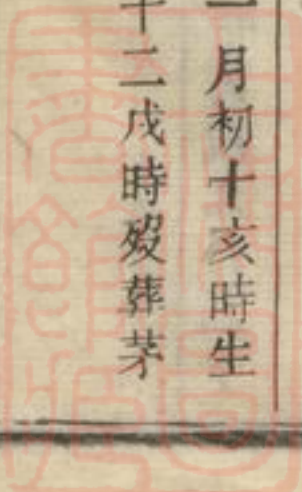 一月初十亥時生
十二戌時歿葬茅